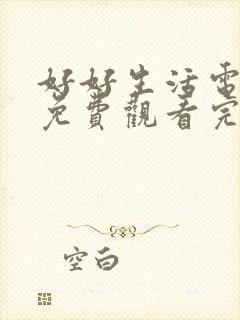 好好生活電
免費觀看完
空白